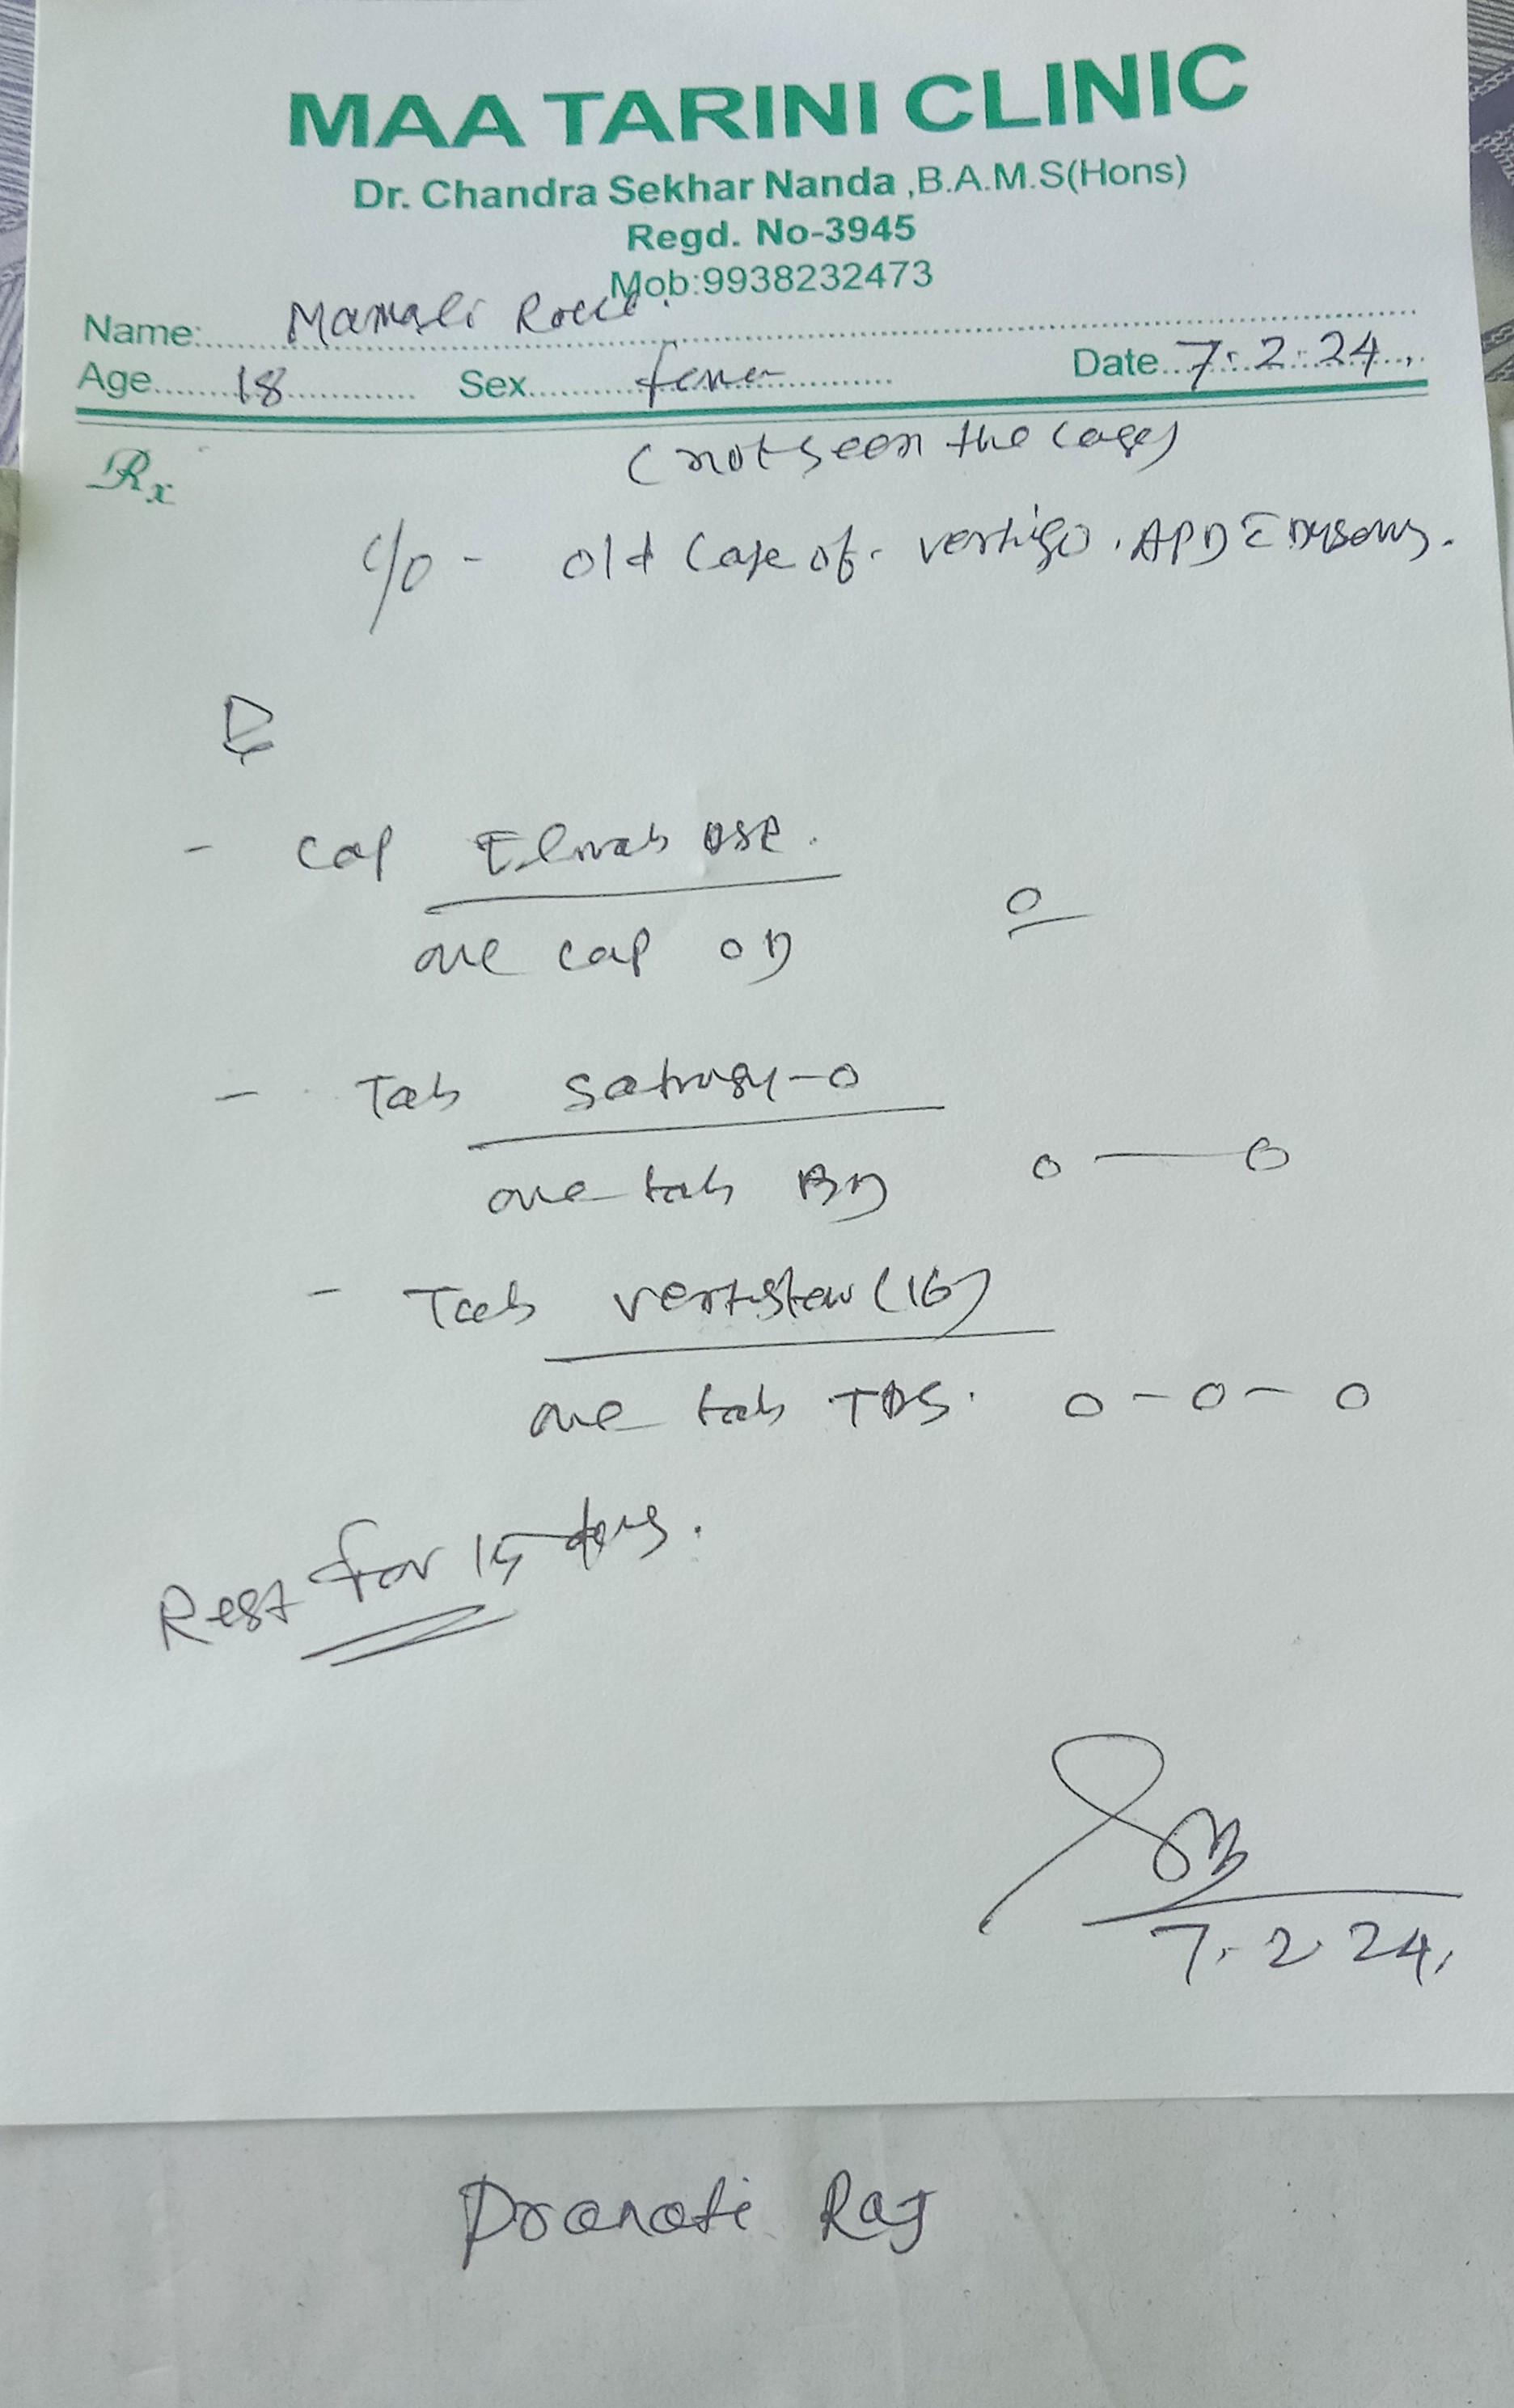 MAA TARINI CLINIC
Dr. Chandra Sekhar Nanda ,B.A.M.S(Hons)
Regd. No-3945
Mob:9938232473
Name: Mamali
Age 18 Sex Date 7.2.24.
Rx
(not seen the case)
c/o - old case of vertigo. APD
- Cap DSR.
one cap OD O
- Tab -O
one tab BD O — O
- Tab (16)
one tab TDS. O - O - O
Rest for 15 days.
7.2.24.
Pranati Ray